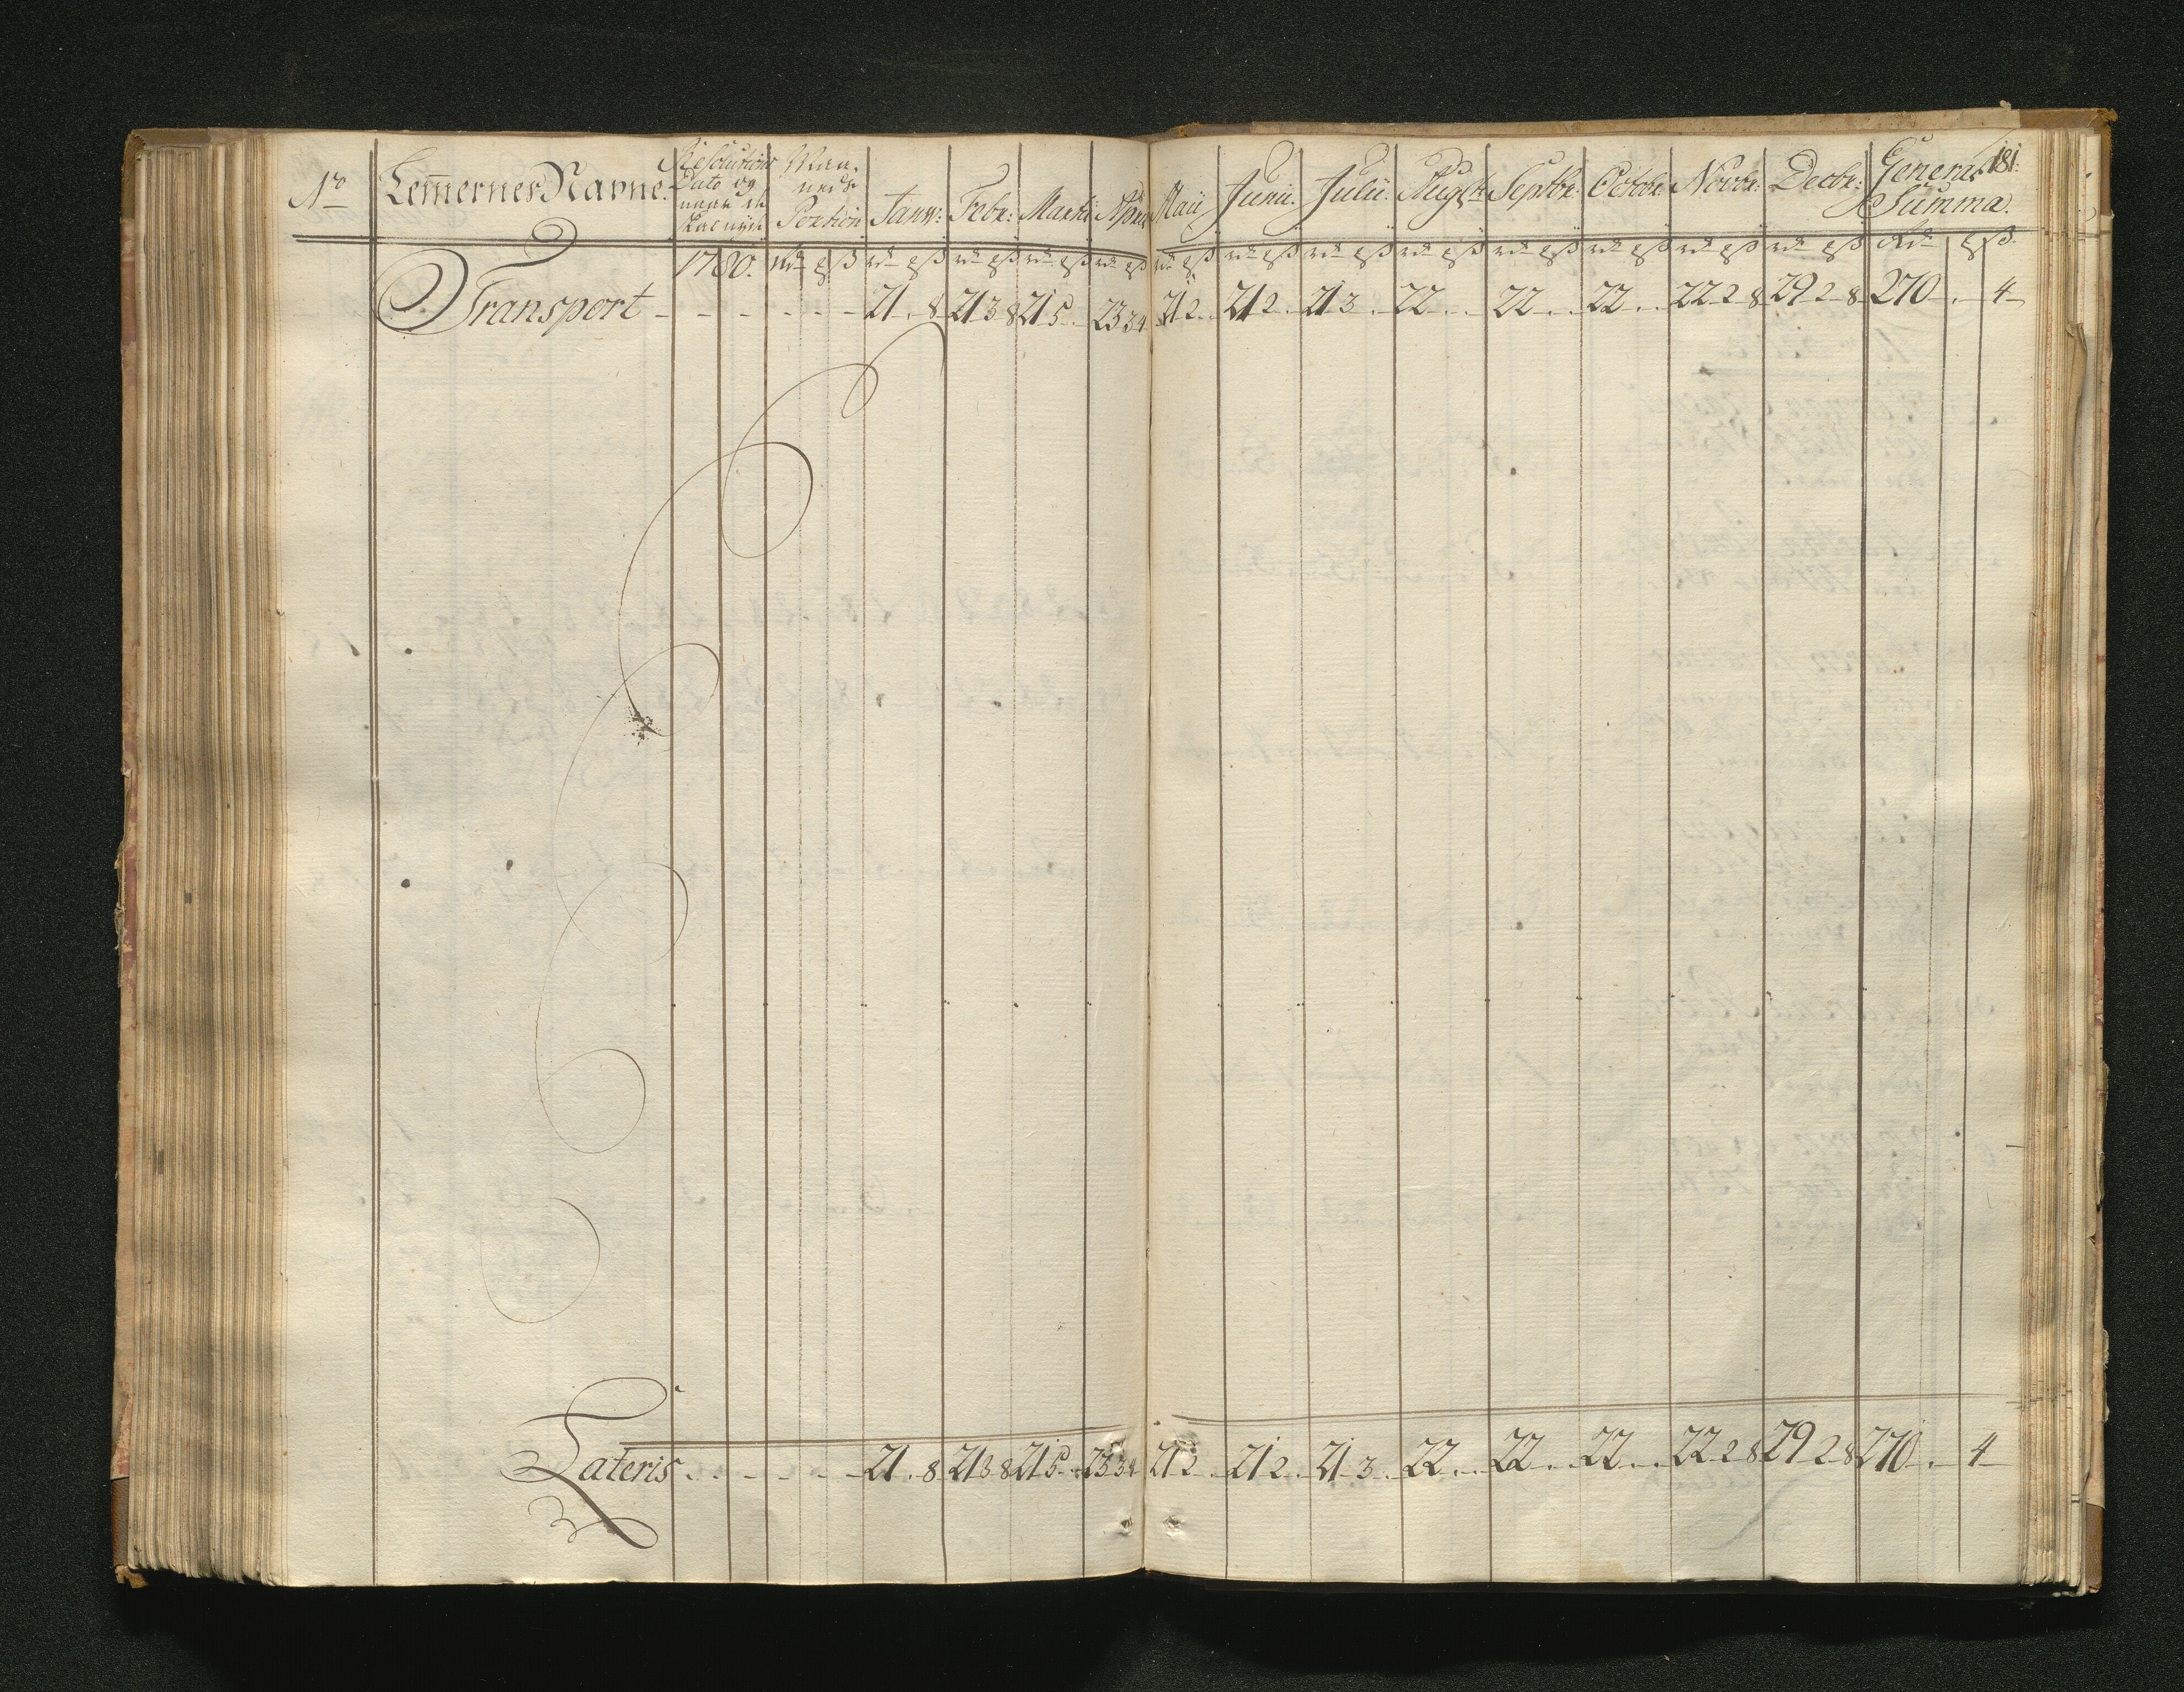 181.
No Lem̅ernes Navne. Resolutions Dato og Maa- neds Portion Janv: Febr: Martii April Maii Junii: Julii: Augstii Septbr: Octobr: Novbr: Decbr: General Summa.
1780. rdr ß rdr ß rdr ß rdr ß rdr ß rdr ß rdr ß rdr ß rdr ß rdr ß rdr ß rdr ß rdr ß Rdr ß
Transport - - - - - - 21 . 8 21 3 8 21 5 . 23 3 4 21 2 . 21 2 . 21 3 . 22 . . 22 . . 22 . . 22 2 8 29 2 8 270 . 4
Lateris - - - - - - 21 . 8 21 3 8 21 5 . 23 3 4 21 2 . 21 2 . 21 3 . 22 . . 22 . . 22 . . 22 2 8 29 2 8 270 . 4